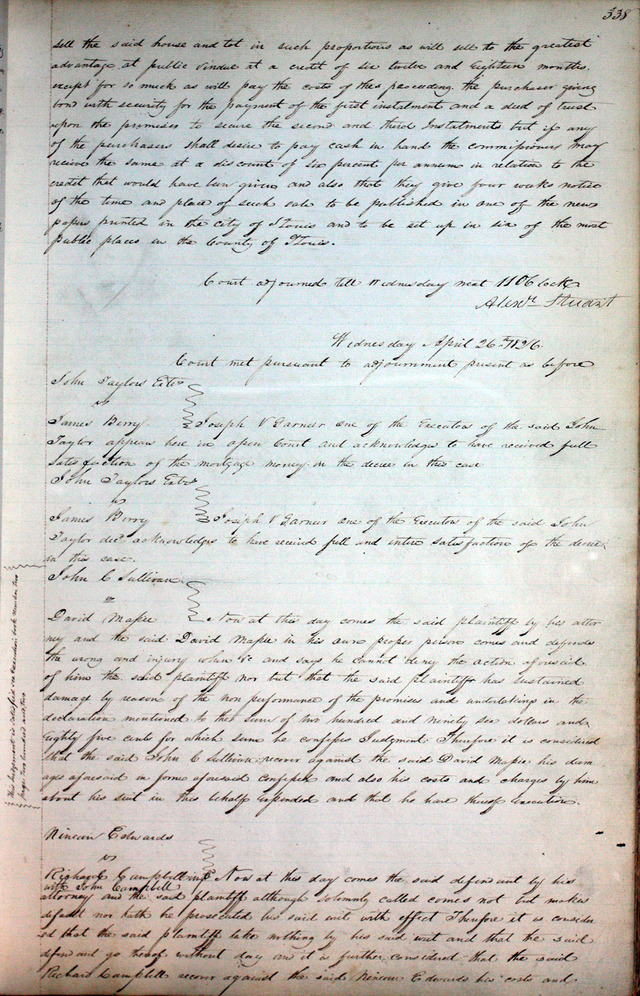 338
sell the said house and lot in such proportions as will sell to the greatest
advantage at public vendue at a credit of six twelve and Eighteen months.
except for so much as will pay the costs of this proceeding. the purchaser giving
bond with security for the payment of the first instalment and a deed of trust
upon the premises to secure the second and third Instalments but if any
of the purchasers shall desire to pay cash in hand the commissioners may
receive the same at a discount of six percent per annum in relation to the
credit that would have been given and also that they give four weeks notice
of the time and place of such sale to be published in one of the news
papers printed in the city of St Louis and to be set up in six of the most
public places in the County of St Louis.
Court adjourned till Wednesday next 11 O Clock
Alexr. Stuart
Wednesday April 26th 1826.
Court met pursuant to adjournment present as before
John Taylors Extrs
vs
James Berry Joseph V Garnier one of the Executors of the said John
Taylor appears here in open Court and acknowledges to have received full
satisfaction of the mortgage money in the decree in this case
John Taylors Extrs
vs
James Berry Joseph V Garnier one of the Executors of the said John
Taylor decd. acknowledges to have received full and intire satisfaction of the decree
in this case.
John C Sullivan
vs
David Massie Now at this day comes the said plaintiff by his attor
ney and the said David Massie in his own proper person comes and defends
the wrong and injury when &c and says he cannot deny the action aforesaid
of him the said plaintiff nor but that the said plaintiff has sustained
damage by reason of the non performance of the promises and undertakings in the
declaration mentioned to the sum of two hundred and ninety six dollars and
Eighty five cents for which sum he confesses Judgment. Therefore it is considered
that the said John C Sullivan recover against the said David Massie his dam
ages aforesaid in form aforesaid confessed and also his costs and charges by him
about his suit in this behalf expended and that he have thereof Execution.
This judgement is satisfied on execution book number two
page two hundred
Ninean Edwards
vs
Richard Campbell impl
with John Campbell Now at this day comes the said defendant by his
attorney and the said plaintiff although solemnly called comes not but makes
default nor hath he prosecuted his said suit with effect Therefore it is consider
ed that the said plaintiff take nothing by his said writ and that the said
defendant go thereof without day and it is further considered that the said
Richard Campbell recover against the said Ninean Edwards his costs and